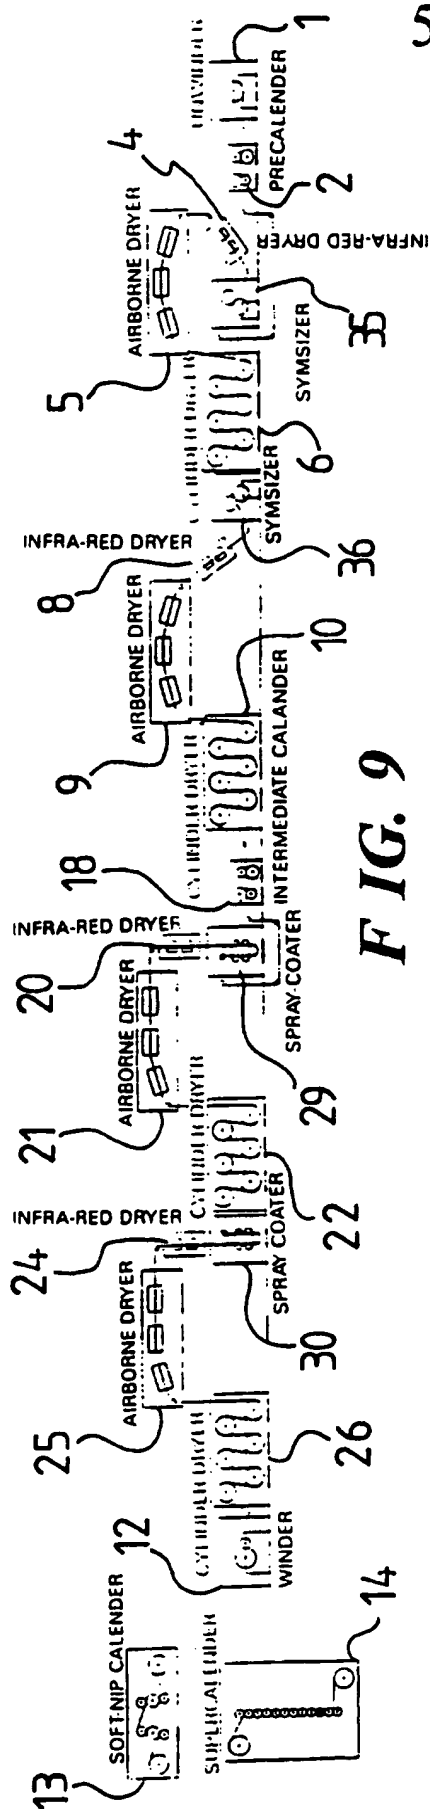 5
1
UNWINDER
2
PRECALENDER
4
INFRA-RED DRYER
AIRBORNE DRYER
5
35
SYMSIZER
CYLINDER DRYER
6
SYMSIZER
36
INFRA-RED DRYER
8
AIRBORNE DRYER
9
10
CYLINDER DRYER
INTERMEDIATE CALANDER
18
INFRA-RED DRYER
20
SPRAY-COATER
29
AIRBORNE DRYER
21
CYLINDER DRYER
22
INFRA-RED DRYER
24
SPRAY COATER
30
AIRBORNE DRYER
25
CYLINDER DRYER
26
12
WINDER
SOFT-NIP CALENDER
13
SUPERCALENDER
14
F IG. 9